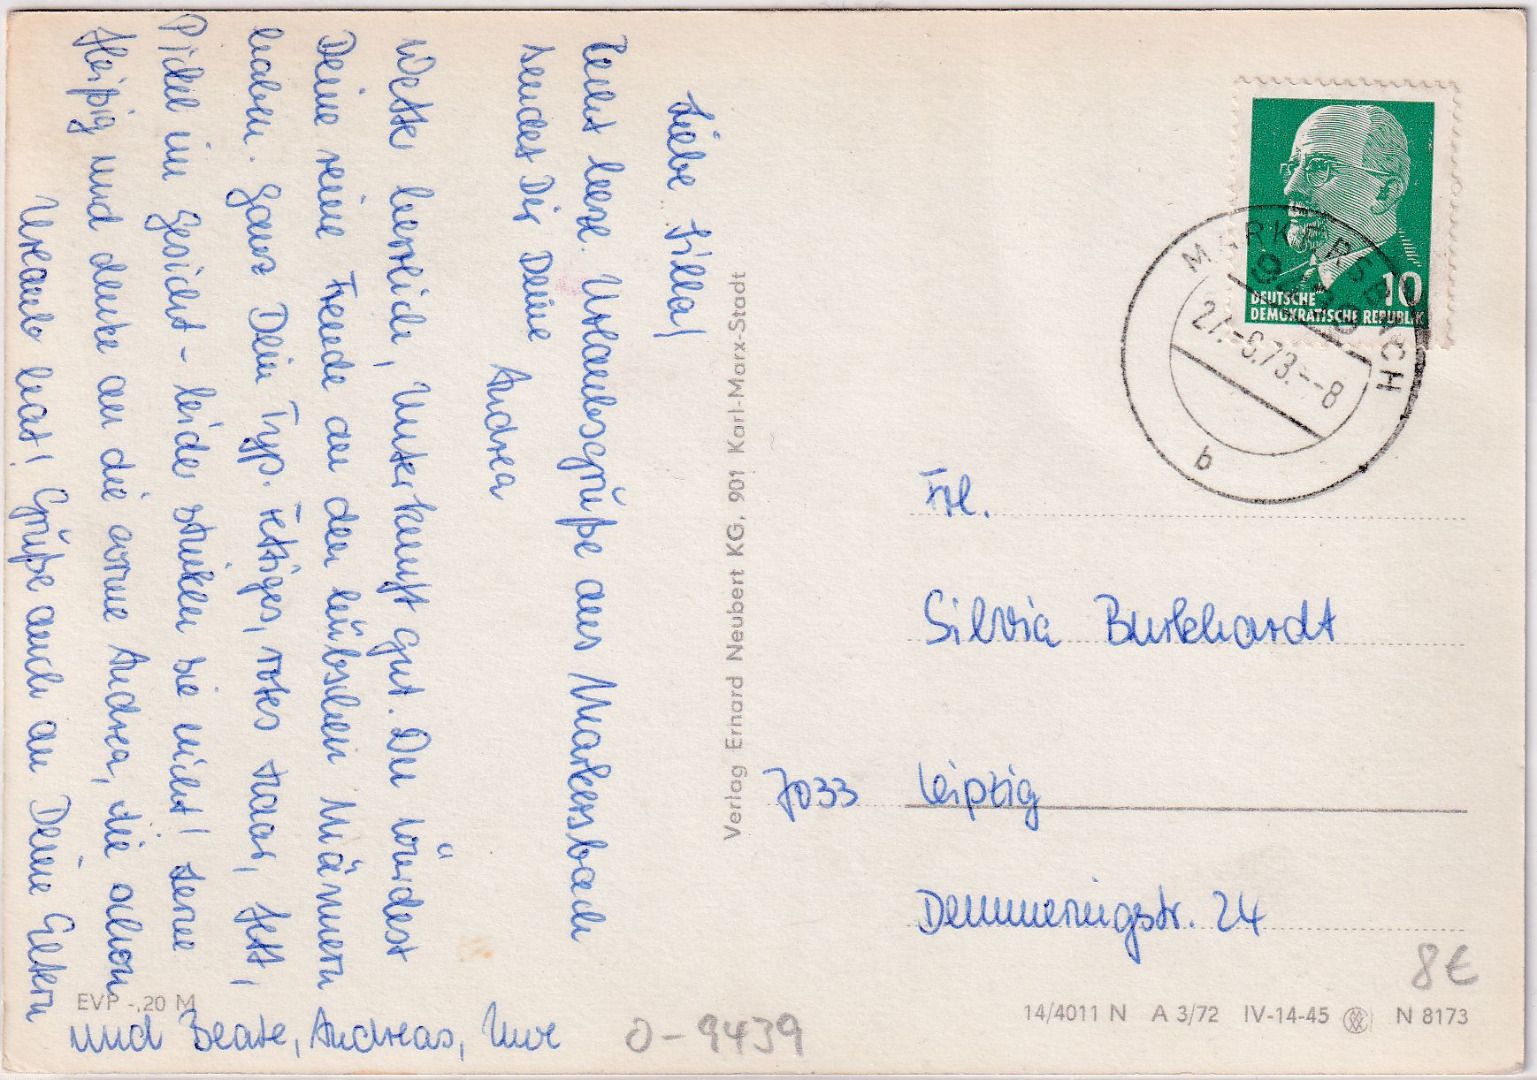 Liebe Silla!
Recht herzl. Urlaubsgrüße aus Markersbach
sendet Dir Deine
Andrea
Wetter herrlich, Unterkunft gut. Du würdest
Deine reine Freude an den hübschen Männern
haben. Ganz Dein Typ. Fettiges, rotes Haar, fett,
Pickel im Gesicht - leider stinken sie nicht! Lerne
fleißig und denke an die arme Andrea, die schon
Urlaub hat! Grüße auch an Deine Eltern
und Beate, Andreas, Uwe
Verlag Erhard Neubert KG, 901 Karl-Marx-Stadt
10
DEUTSCHE
DEMOKRATISCHE REPUBLIK
MARKERSBACH
27.-6.73.--8
b
Frl.
Silvia Burkhardt
7033 Leipzig
Demmeringstr. 24
8€
EVP -,20 M
14/4011 N A 3/72 IV-14-45 N 8173
O-9439